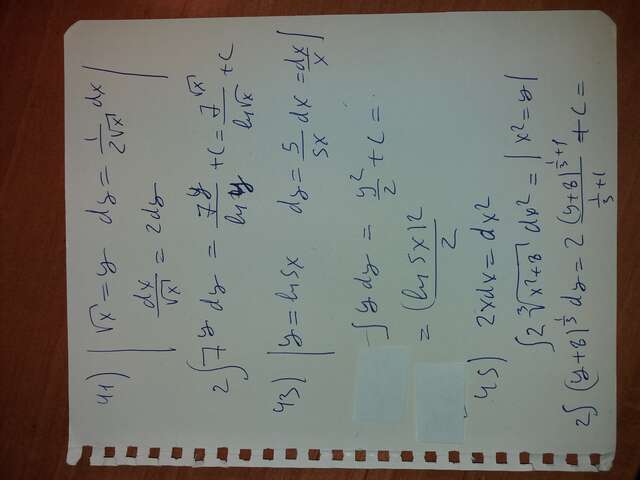 41) | √x = y   dy = 1/(2√x) dx |
dx/√x = 2dy
2∫7^y dy = 7^y/ln y + C = 7^√x/ln√x + C
43) | y = ln 5x   dy = 5/5x dx = dx/x |
∫ y dy = y²/2 + C =
= (ln 5x)2/2
45) 2xdx = dx²
∫2 ∛(x²+8) dx² = | x² = y |
2∫ (y+8)^(1/3) dy = 2 (y+8)^(1/3+1)/(1/3+1) + C =